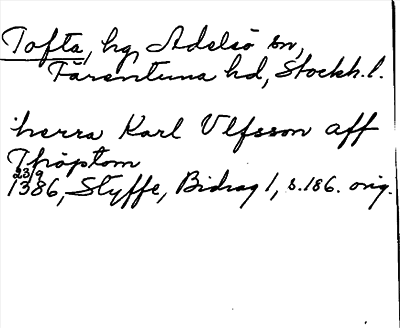 Tofta, hg, Adelsö sn,
Färentuna hd, Stockh. l.
herra Karl Ulfsson aff
Thöptom
23/9
1386, Styffe, Bidrag 1, s. 186. orig.